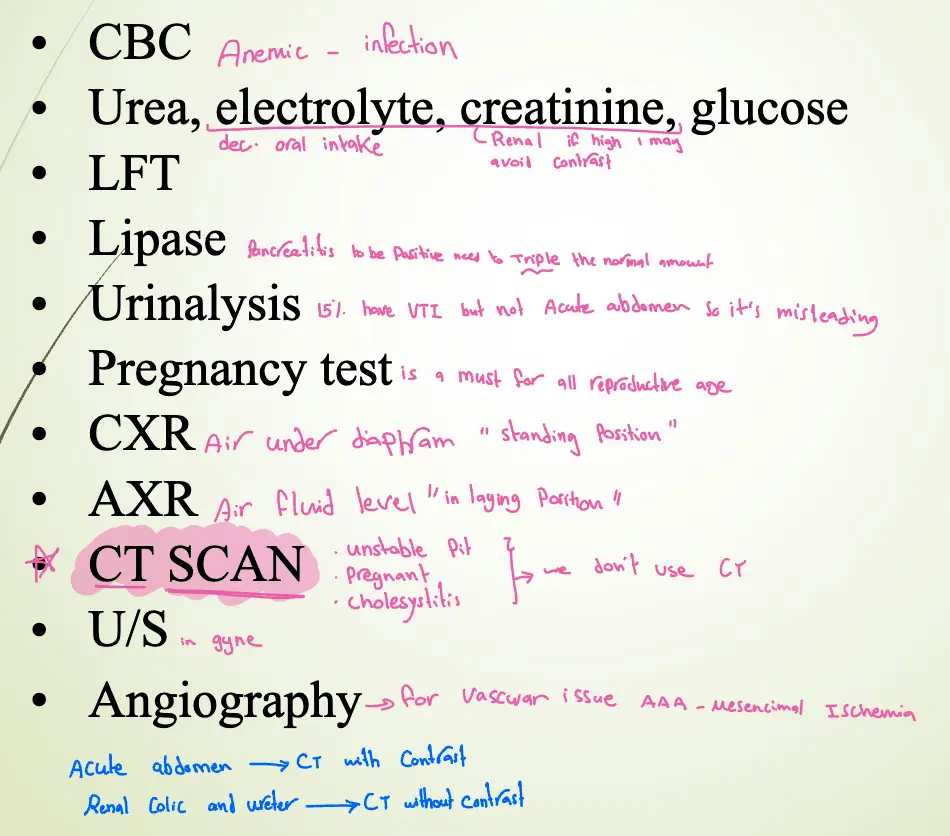 • CBC Anemic - infection
• Urea, electrolyte, creatinine, glucose
dec. oral intake Renal if high i may
avoid contrast
• LFT
• Lipase Pancreatitis to be Positive need to Triple the normal amount
• Urinalysis 15% have UTI but not Acute abdomen so it's misleading
• Pregnancy test is a must for all reproductive age
• CXR Air under diaphram "standing Position"
• AXR Air fluid level "in laying Position"
• CT SCAN
· unstable Pit
· Pregnant → we don't use CT
· cholesystitis
• U/S in gyne
• Angiography → for Vascular issue AAA - Mesencimal Ischemia
Acute abdomen → CT with Contrast
Renal Colic and ureter → CT without contrast